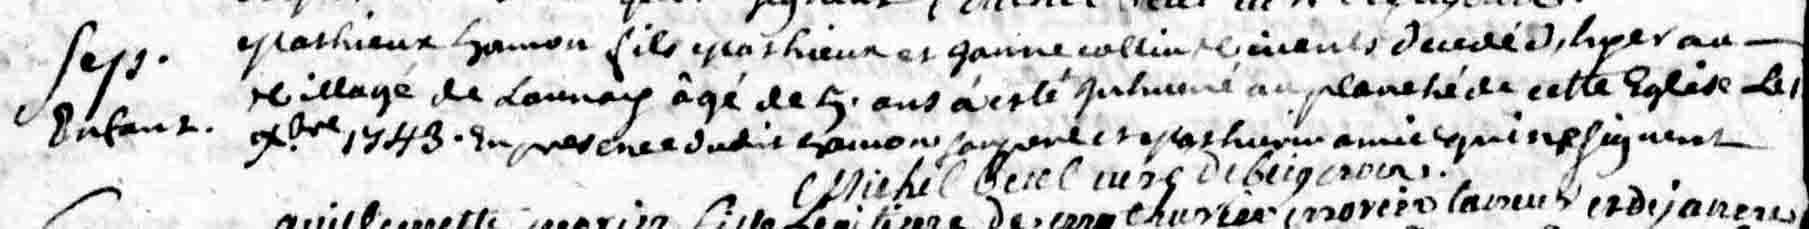 Sep.
Enfant.
Mathieux hamon fils Mathieux et Janne collin vivents decedé d'hyer au
Village de Launay âgé de 5. ans à esté Inhumé au planché de cette Eglise Le
9bre 1743. En presence dudit hamon son pere et Mathurin amice qui ne signent
Michel
guillemette morin fille Legitime de Mathurin morin et de janne